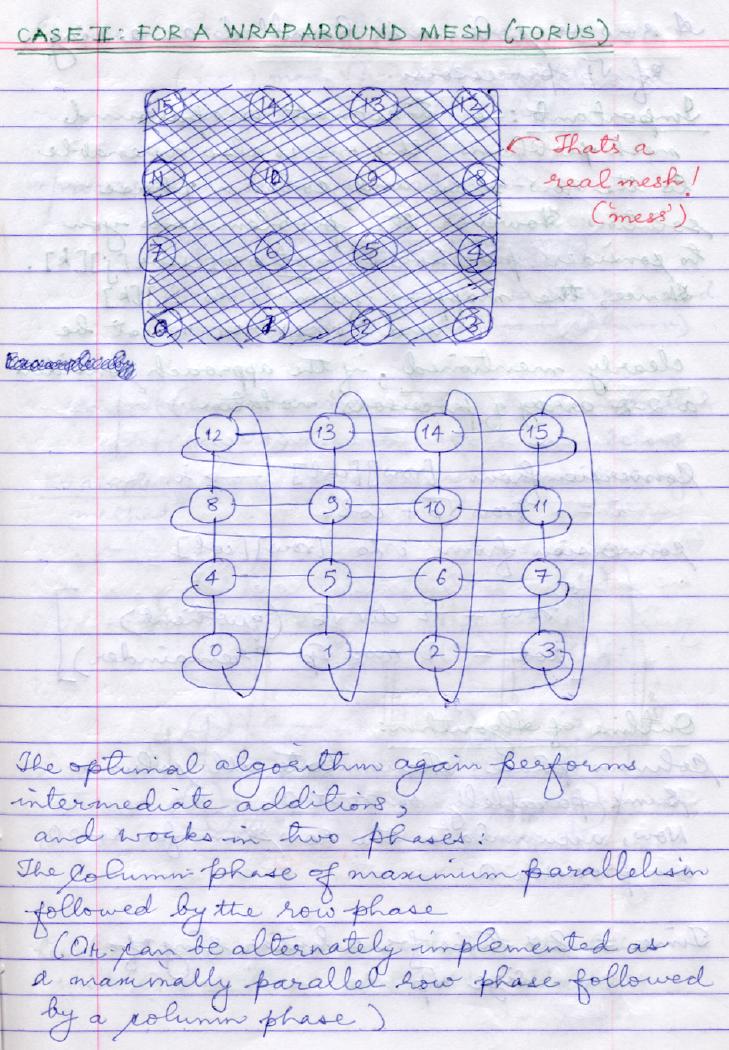 CASE II: FOR A WRAPAROUND MESH (TORUS)
15 14 13 12
11 10 9 8
7 6 5 4
0 1 2 3
That's a
real mesh!
('mess')
12 13 14 15
8 9 10 11
4 5 6 7
0 1 2 3
The optimal algorithm again performs
intermediate additions,
and works in two phases:
The column phase of maximum parallelism
followed by the row phase
(Or can be alternately implemented as
a maximally parallel row phase followed
by a column phase)